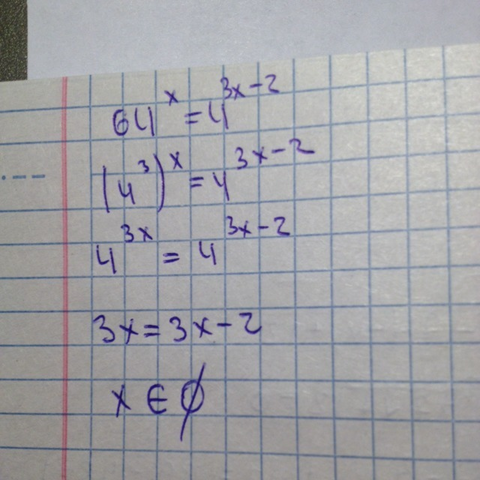 64^x = 4^{3x-2}
(4^3)^x = 4^{3x-2}
4^{3x} = 4^{3x-2}
3x = 3x - 2
x ∈ ∅